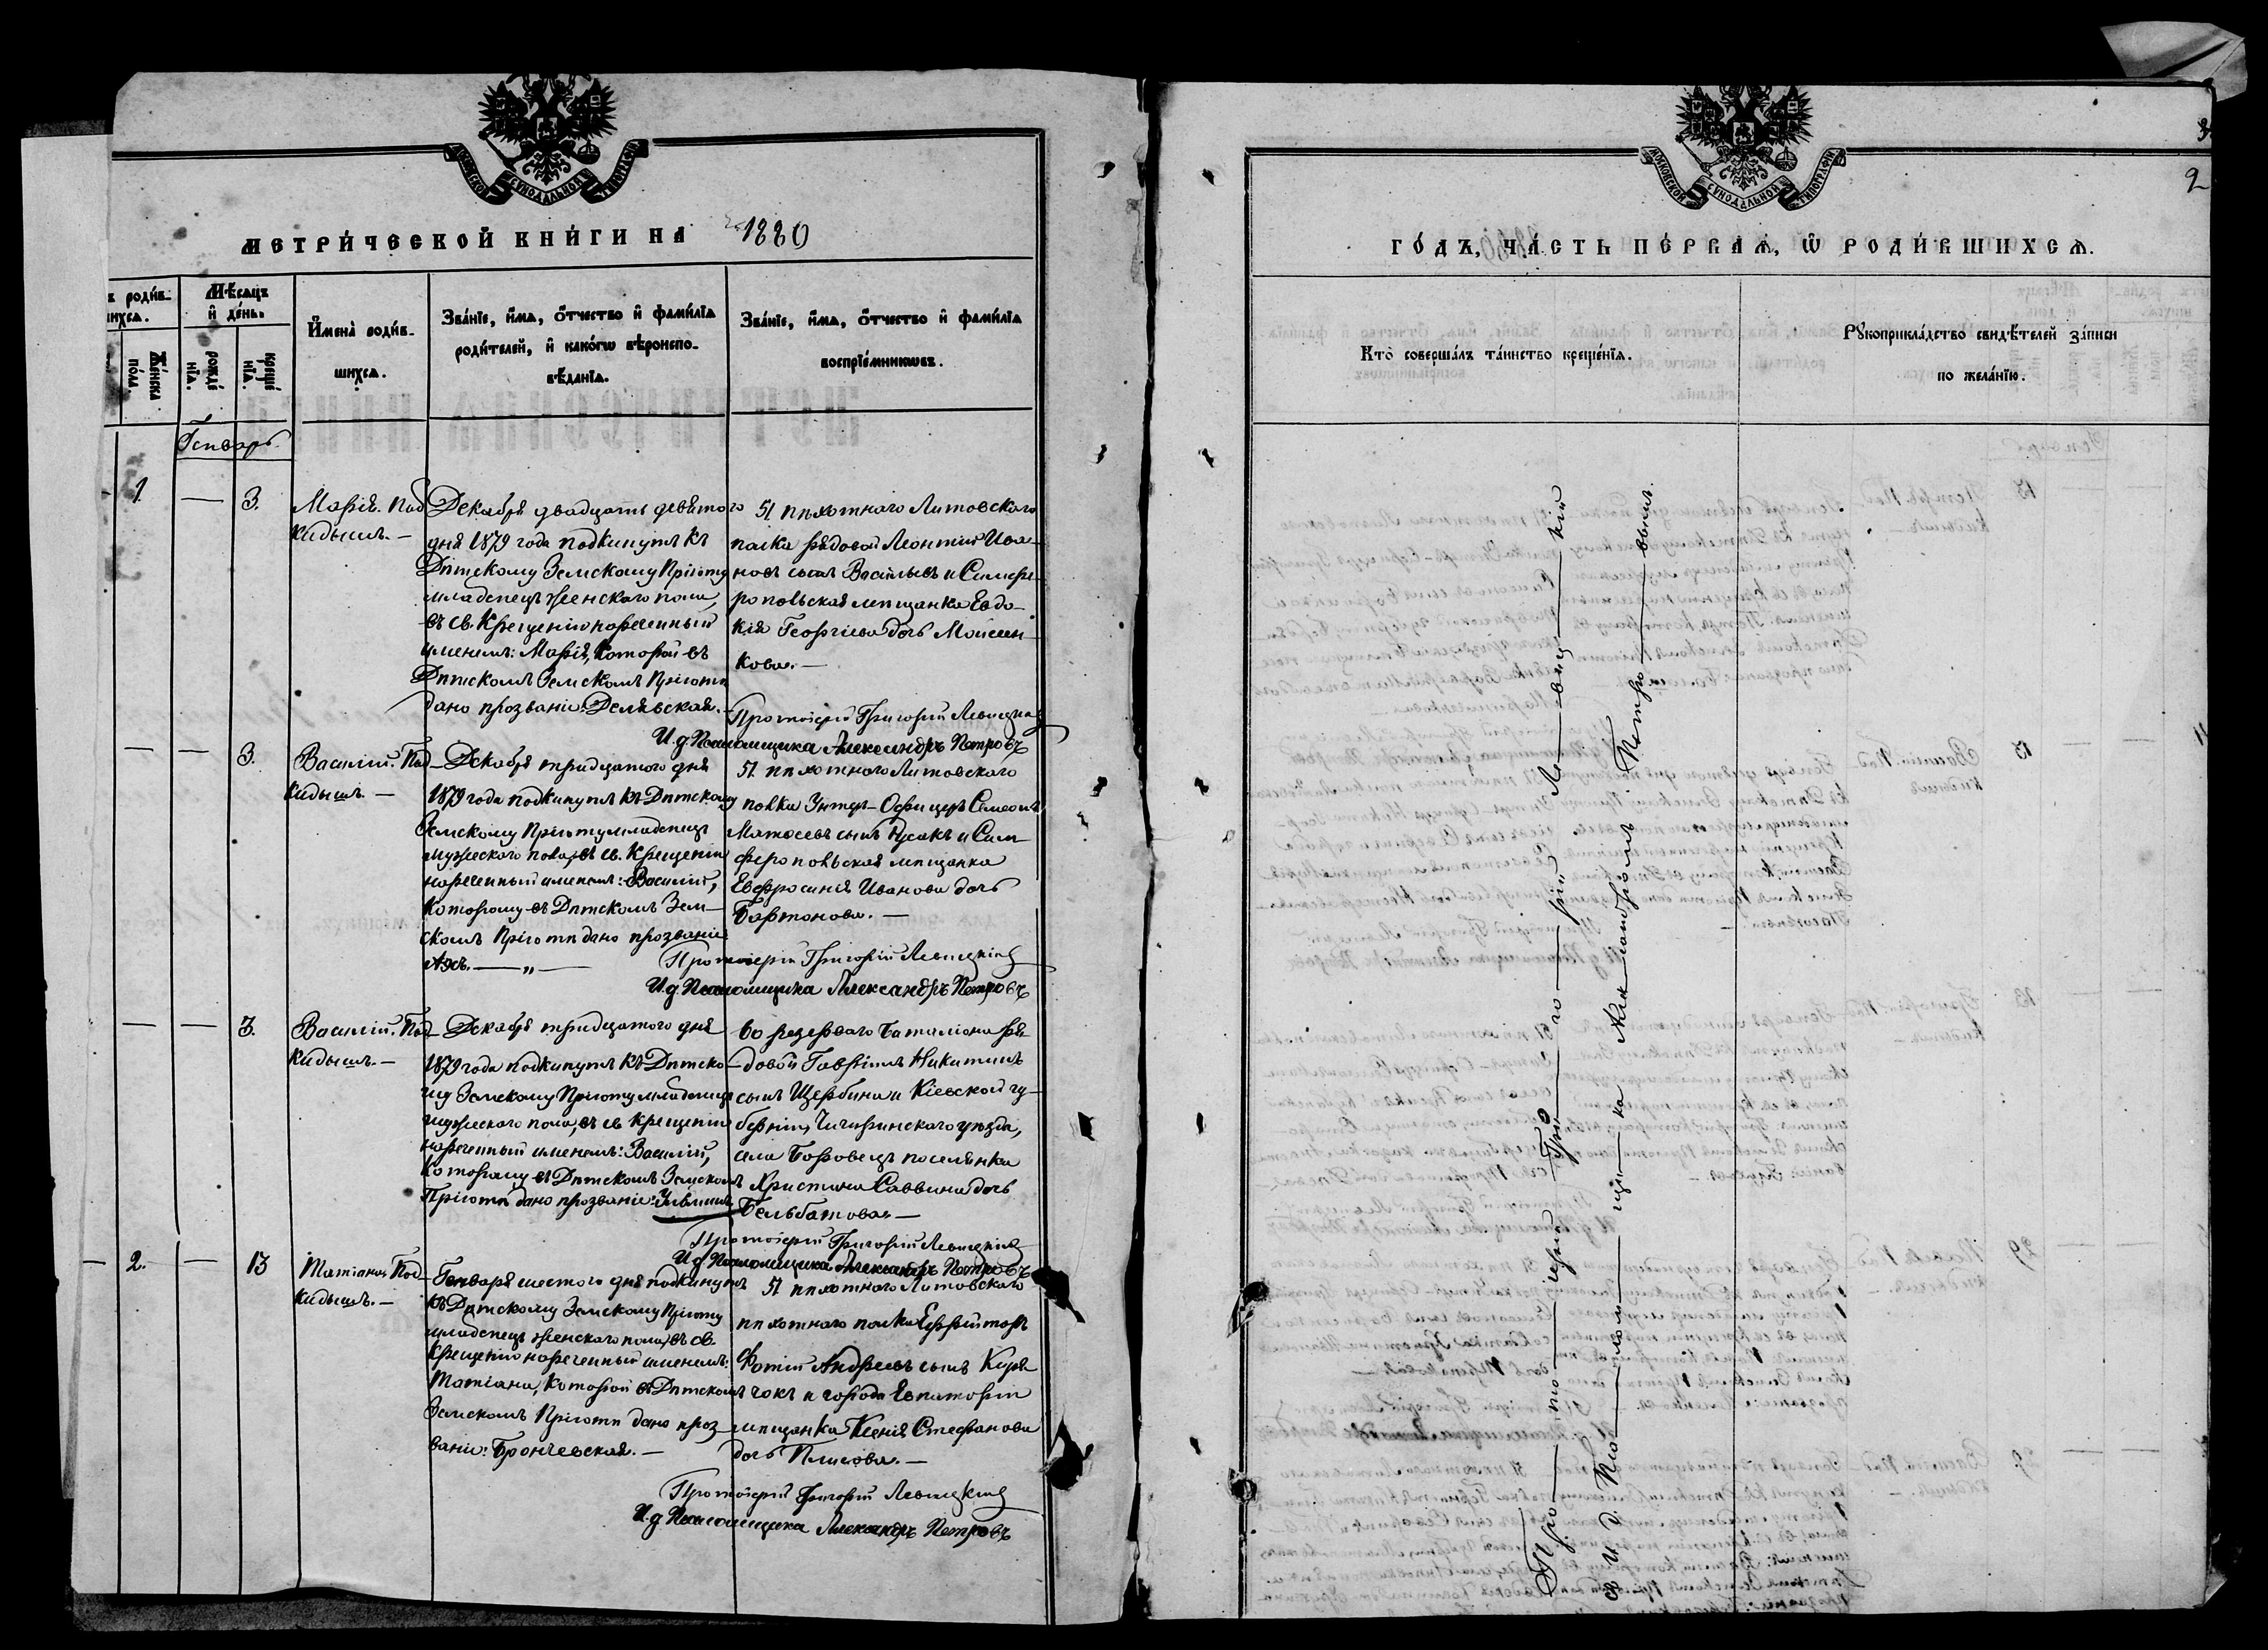 МОСКОВСКОЙ СѴНОДАЛЬНОЙ ТИПОГРАФІИ
МЕТРИ́ЧЕСКОЙ КНИ́ГИ НА 1880
роди́в-
шихся.
Же́нска
по́ла.
Мѣ́сяцъ
и҆ де́нь.
рожде́
нїѧ.
креще́
нїѧ.
И҆мена̀ роди́в-
шихся.
Зва́нїе, и҆́мѧ, ѻ҆́тчество и҆ фами́лїѧ
роди́телей, и҆ како́гѡ вѣроиспо-
вѣ́данїѧ.
Зва́нїе, и҆́мѧ, ѻ҆́тчество и҆ фами́лїѧ
воспрїе́мникѡвъ.
Генварь.
1.
—
3.
Марія. Под
кидышъ. —
Декабря двадцать девятого
дня 1879 года подкинутъ къ
Дѣтскому Земскому Пріюту
младенецъ женскаго пола,
въ св. Крещеніи нареченный
именемъ: Марія, Которой въ
Дѣтскомъ Земскомъ Пріютѣ
дано прозваніе:
51 пѣхотнаго Литовскаго
полка рядовой Леонтий Ива-
новъ сынъ Васильевъ и Симфе-
ропольская мѣщанка Евдо-
кія Георгіева дочь Моисеен-
кова. —
Протоіерей Григорій Левицкій
И. д. Псаломщика Александръ Петровъ
—
—
3.
Василій. Под-
кидышъ. —
Декабря тридцатого дня
1879 года подкинутъ къ Дѣтскому
Земскому Пріюту младенецъ
мужескаго пола, въ св. Крещеніи
нареченный именемъ: Василій,
Которому въ Дѣтскомъ Зем-
скомъ Пріютѣ дано прозваніе
51 пѣхотнаго Литовскаго
полка Унтер-Офицеръ Симеонъ
Матѳеевъ сынъ Русакъ и Сим-
феропольская мѣщанка
Евфросинія Иванова дочь
Бартонова. —
Протоіерей Григорій Левицкій
И. д. Псаломщика Александръ Петровъ
—
—
3.
Василій. Под-
кидышъ. —
Декабря тридцатого дня
1879 года подкинутъ къ Дѣтско-
му Земскому Пріюту младенецъ
мужескаго пола, въ св. Крещеніи
нареченный именемъ: Василій,
Которому въ Дѣтскомъ Земскомъ
Пріютѣ дано прозваніе:
резервнаго баталіона ря-
довой Гавріилъ Никитинъ
сынъ Щербина и Кіевской гу-
берніи, Чигиринскаго уѣзда,
села Боровецъ поселянка
Христина Саввина дочь
Бельбатова. —
Протоіерей Григорій Левицкій
И. д. Псаломщика Александръ Петровъ
2.
—
13
Татіана. Под-
кидышъ. —
Генваря шестого дня подкинутъ
къ Дѣтскому Земскому Пріюту
младенецъ женскаго пола, въ св.
Крещеніи нареченный именемъ:
Татіана, Которой въ Дѣтскомъ
Земскомъ Пріютѣ дано проз-
ваніе: Брончевская. —
51 пѣхотнаго Литовскаго
пѣхотнаго полка Ефрейторъ
Фотій Андреевъ сынъ Киря-
чокъ и города Евпаторіи
мѣщанка Ксенія Стефанова
дочь Плисова. —
Протоіерей Григорій Левицкій
И. д. Псаломщика Александръ Петровъ
МОСКОВСКОЙ СѴНОДАЛЬНОЙ ТИПОГРАФІИ
3
2
ГО́ДЪ, ЧА́СТЬ ПЕ́РВАѦ, Ѽ РОДИ́ВШИХСѦ.
Кто̀ соверша́лъ та́инство креще́нїѧ.
Рꙋкоприкла́дство свидѣ́телей за́писи
по жела́нїю.
Про — то — іерей — Гри — го — рій — Ле — виц — кій
И. д. Пса — лом — щи — ка Александръ Петро — выхъ.